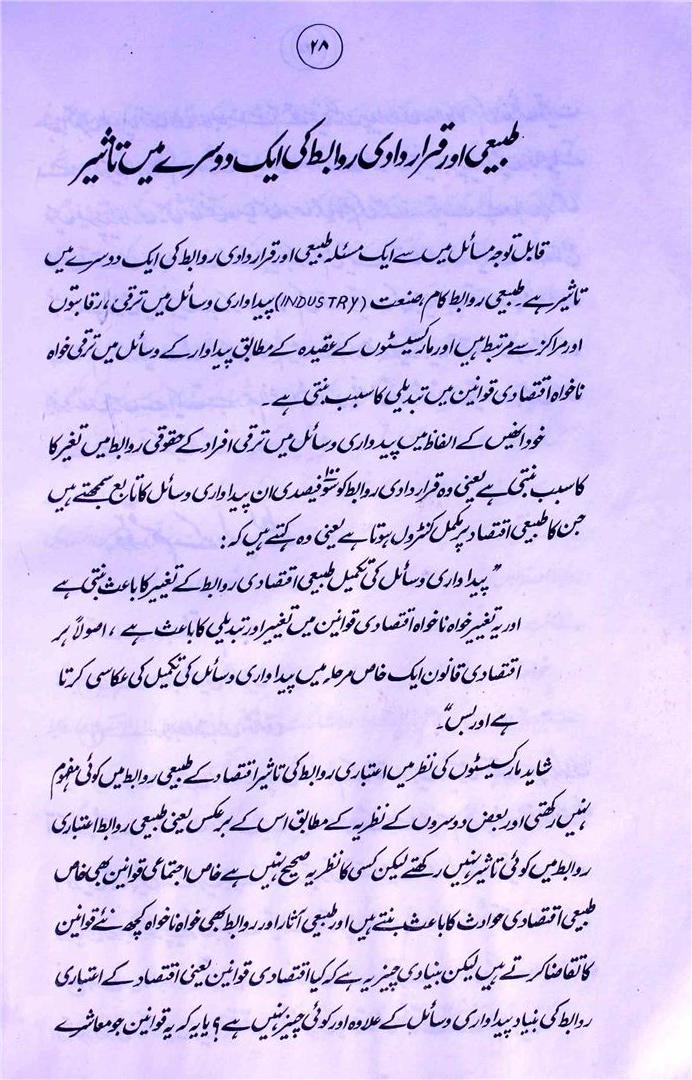 ۲۸
طبیعی اور قرار دادی روابط کی ایک دوسرے میں تاثیر
قابل توجہ مسائل میں سے ایک مسئلہ طبیعی اور قرار دادی روابط کی ایک دوسرے میں
تاثیر ہے۔ طبیعی روابط کام، صنعت (INDUSTRY) پیداواری وسائل میں ترقی، رقابتوں
اور مراکز سے مرتبط ہیں اور مارکسیسٹوں کے عقیدہ کے مطابق پیداوار کے وسائل میں ترقی خواہ
ناخواہ اقتصادی قوانین میں تبدیلی کا سبب بنتی ہے۔
خود انھیں کے الفاظ میں پیدواری وسائل میں ترقی افراد کے حقوقی روابط میں تغیر کا
کا سبب بنتی ہے یعنی وہ قرار دادی روابط کو سو ۱۰۰ فیصدی ان پیداواری وسائل کا تابع سمجھتے ہیں
جن کا طبیعی اقتصاد پر مکمل کنٹرول ہوتا ہے یعنی وہ کہتے ہیں کہ :
"پیداواری وسائل کی تکمیل طبیعی اقتصادی روابط کے تغیر کا باعث بنتی ہے
اور یہ تغییر خواہ ناخواہ اقتصادی قوانین میں تغییر اور تبدیلی کا باعث ہے ، اصولاً ہر
اقتصادی قانون ایک خاص مرحلہ میں پیداواری وسائل کی تکمیل کی عکاسی کرتا
ہے اور بس"۔
شاید مارکسیسٹوں کی نظر میں اعتباری روابط کی تاثیر اقتصاد کے طبیعی روابط میں کوئی مفہوم
نہیں رکھتی اور بعض دوسروں کے نظریہ کے مطابق اس کے برعکس یعنی طبیعی روابط اعتباری
روابط میں کوئی تاثیر نہیں رکھتے لیکن کسی کا نظریہ صحیح نہیں ہے خاص اجتماعی قوانین بھی خاص
طبیعی اقتصادی حوادث کا باعث بنتے ہیں اور طبیعی آثار اور روابط بھی خواہ ناخواہ کچھ نئے قوانین
کا تقاضا کرتے ہیں لیکن بنیادی چیز یہ ہے کہ کیا اقتصادی قوانین یعنی اقتصاد کے اعتباری
روابط کی بنیاد پیداواری وسائل کے علاوہ اور کوئی چیز نہیں ہے؟ یا یہ کہ یہ قوانین جو معاشرے